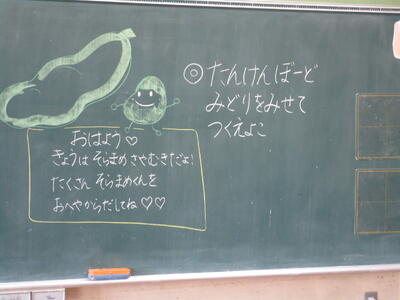 おはよう♡
きょうは そらまめ さやむきだよ!
たくさん そらまめくんを
おへやからだしてね♡♡
◎たんけんぼーど
みどりをみせて
つくえよこ